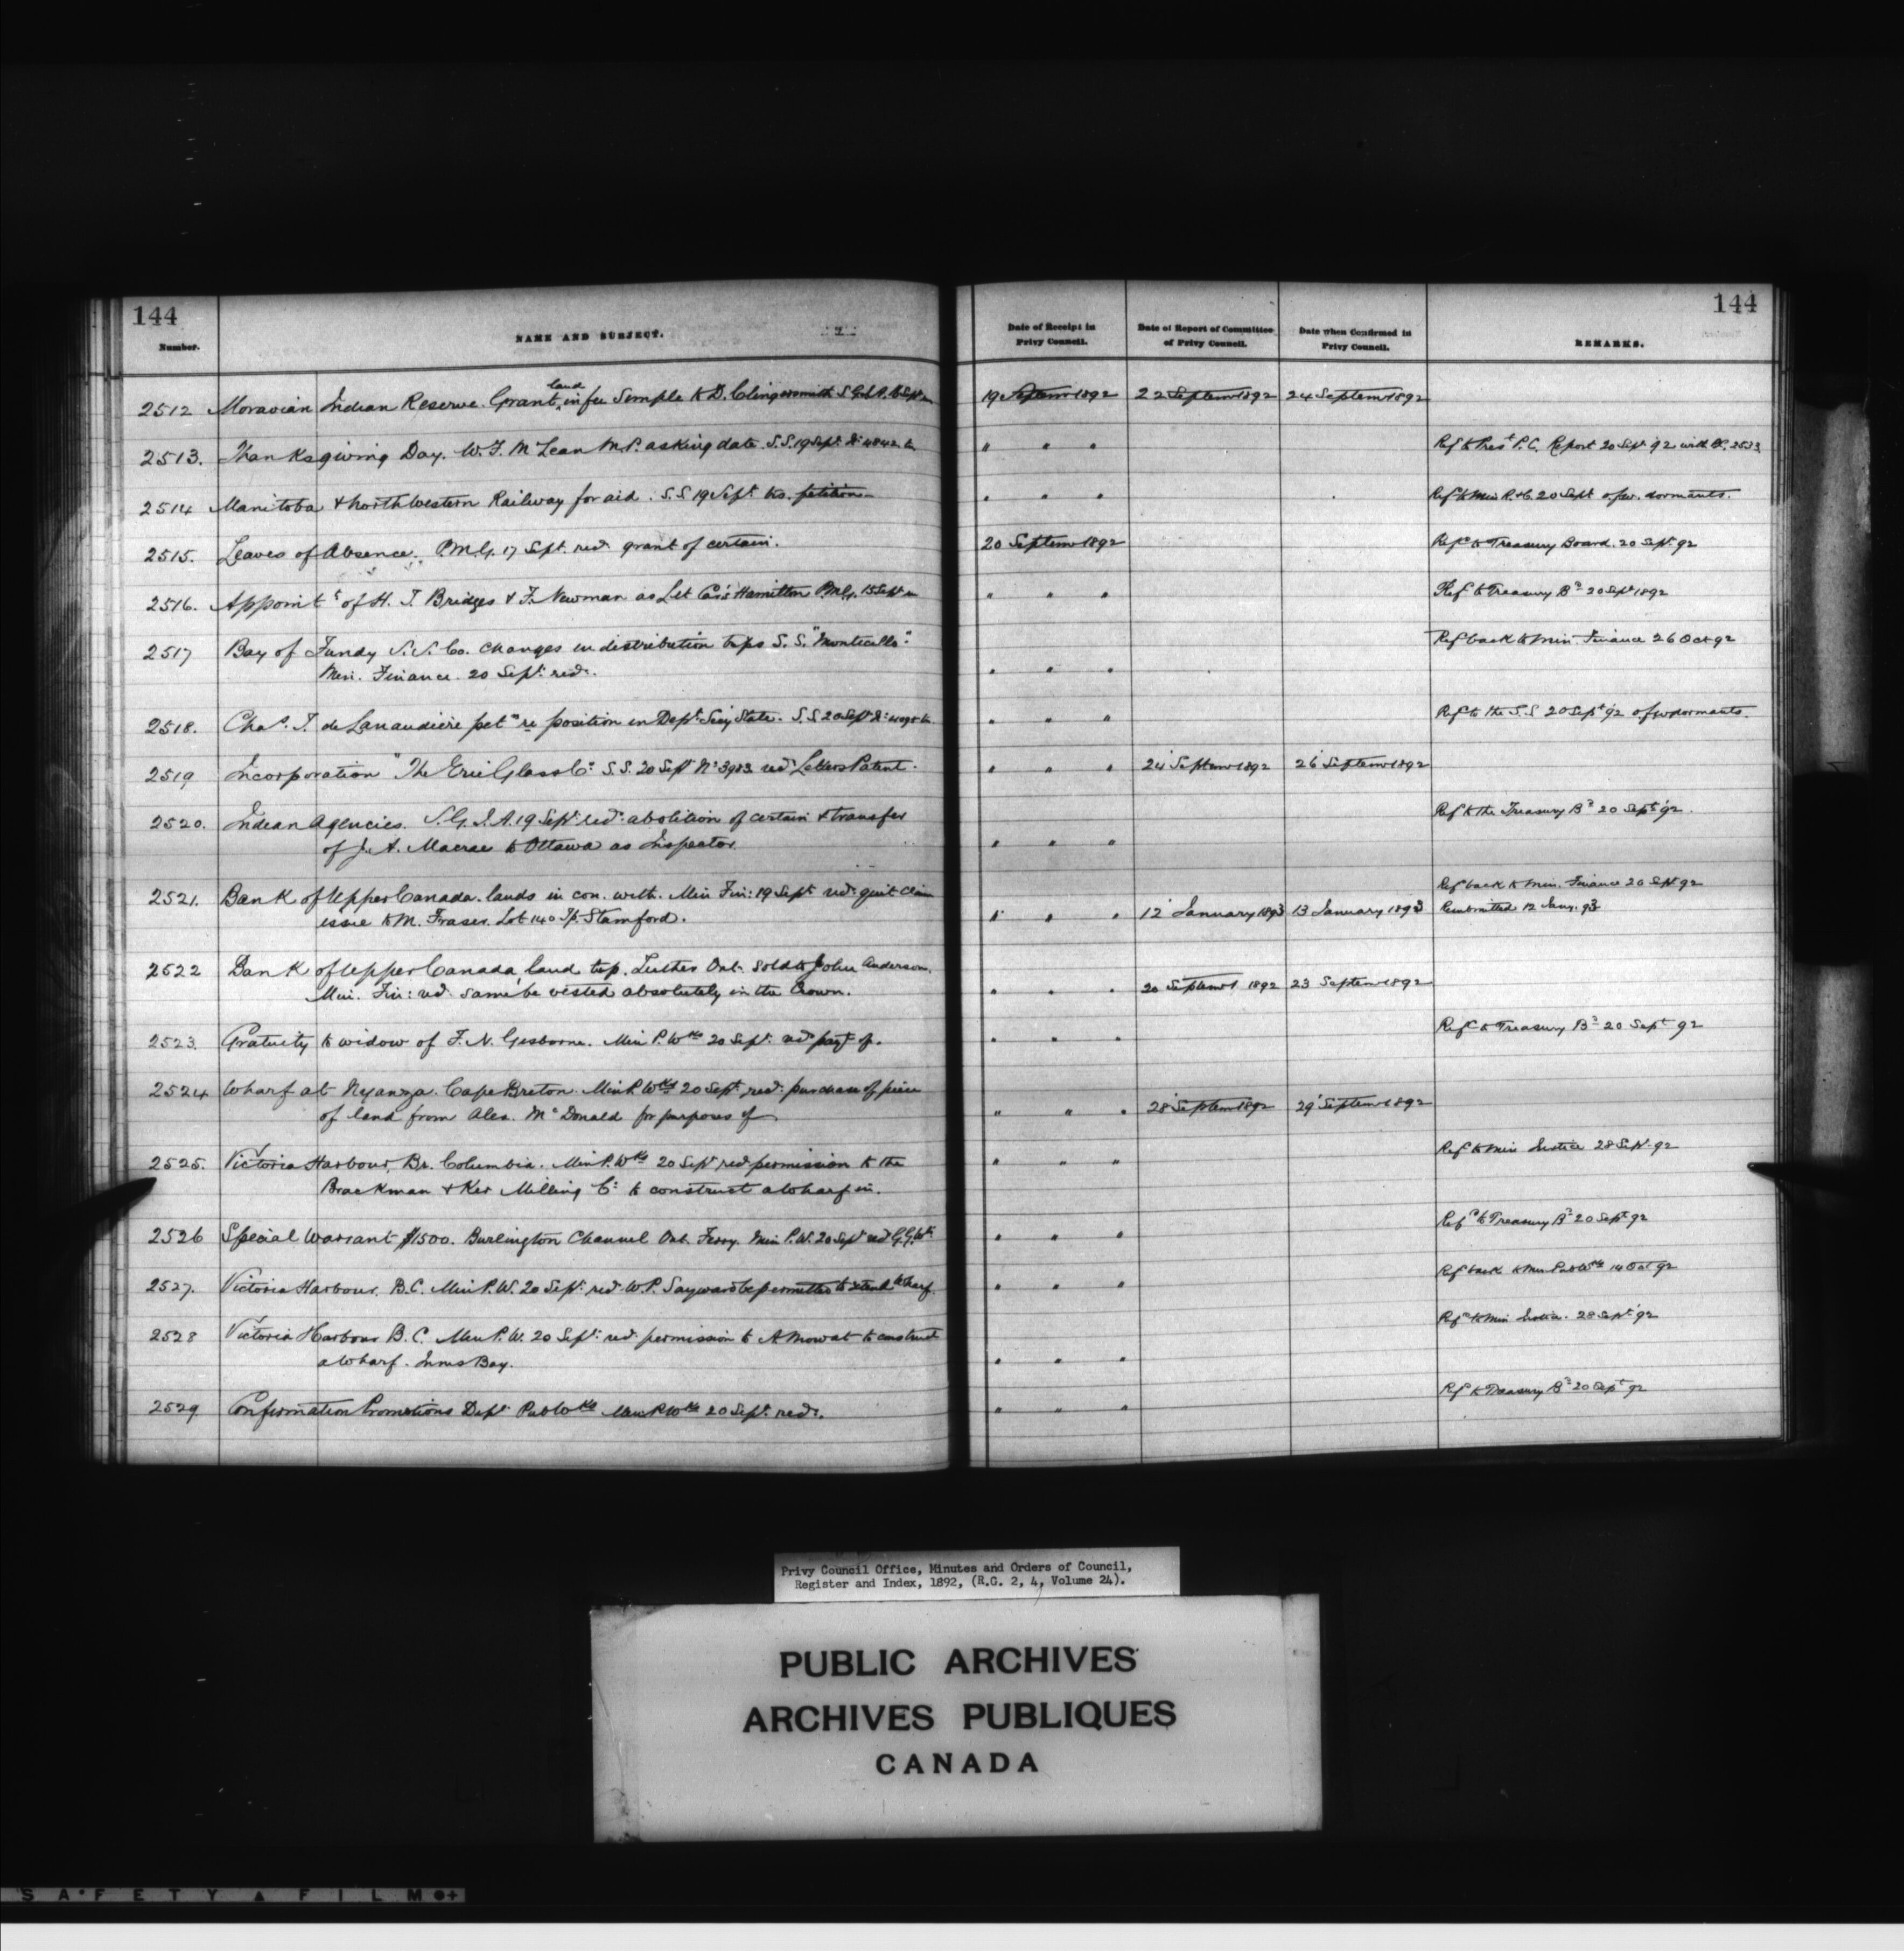 144
144
Number.
NAME AND SUBJECT.
Date of Receipt in Privy Council.
Date of Report of Committee of Privy Council.
Date when Confirmed in Privy Council.
REMARKS.
2512 Moravian Indian Reserve. Grant land in fee Simple to D. Clingersmith 19 Septemr 1892 22 Septemr 1892 24 Septemr 1892
2513. Thanksgiving Day. W. F. McLean M.P. asking date. S.S. 19 Sept. No 4842 " " " Ref to Prest P.C. Report 20 Sept '92 with 2533
2514 Manitoba & North Western Railway for aid. S.S. 19 Sept petition " " " Ref to Min R. & C. 20 Sept dormants.
2515. Leaves of Absence. P.M.G. 17 Sept. recd grant of certain. 20 Septemr 1892 Refd to Treasury Board. 20 Sept. 92
2516. Appoints of H. T. Bridges & F. Newman as Let Car's Hamilton P.M.G. 15 Sept " " " Ref to Treasury Bd 20 Sept 1892
2517 Bay of Fundy S.S. Co. changes in distribution trips S.S. "Monticello". Ref back to Min Finance 26 Oct 92
Min. Finance 20 Sept. recd. " " "
2518. Chas. T. de Lanaudière petn re position in Dept. Secy State. S.S. 20 Sept " " " Ref to the S.S 20 Sept '92 dormants.
2519 Incorporation "The Erie Glass Co. S.S. 20 Sept No 3983 recd Letters Patent. " " " 24 Septemr 1892 26 Septemr 1892
2520. Indian Agencies. S.G.I.A. 19 Sept. recd. abolition of certain & transfer Ref to the Treasury Bd 20 Sept '92.
of J. A. Macrae to Ottawa as Inspector. " " "
2521. Bank of Upper Canada. lands in con. with. Min Fin: 19 Sept recd. quit claim Ref back to Min. Finance 20 Sept 92
issue to M. Fraser. Lot 140 Tp. Stamford. " " " 12 January 1893 13 January 1893 Resubmitted 12 Jany. 93
2522 Bank of Upper Canada, land twp. Luther Ont. sold to John Anderson.
Min. Fin: recd. same be vested absolutely in the Crown. " " " 20 Septemr 1892 23 Septemr 1892
2523. Gratuity to widow of F. N. Gisborne. Min P. Wks 20 Sept. recd payt of. " " " Refd to Treasury Bd 20 Sept 92
2524 Wharf at Nyanza. Cape Breton. Min P. Wks 20 Sept. recd. purchase of piece
of land from Alex. McDonald for purposes of " " " 28 Septemr 1892 29 Septemr 1892
2525. Victoria Harbour, Br. Columbia. Min P. Wks 20 Sept recd permission to the " " " Ref to Min Justice 28 Sept. 92
Brackman & Ker Milling Co. to construct a wharf in.
2526 Special Warrant $1500. Burlington Channel Ont. Ferry. Min P.W. 20 Sept recd " " " Refd to Treasury Bd 20 Sept 92
2527. Victoria Harbour. B.C. Min P.W. 20 Sept. recd W. P. Sayward be permitted to extend wharf. " " " Ref back to Min Pub Wks 14 Oct 92
2528 Victoria Harbour B.C. Min P.W. 20 Sept. recd permission to A Mowat to construct Refd to Min Justice. 28 Sept. '92
a wharf. Inner Bay. " " "
2529. Confirmation Promotions Dept Pub Wks Min P. Wks 20 Sept. recd. " " " Ref to Treasury Bd 20 Sept 92
Privy Council Office, Minutes and Orders of Council,
Register and Index, 1892, (R.G. 2, 4, Volume 24).
PUBLIC ARCHIVES
ARCHIVES PUBLIQUES
CANADA
SAFETY FILM